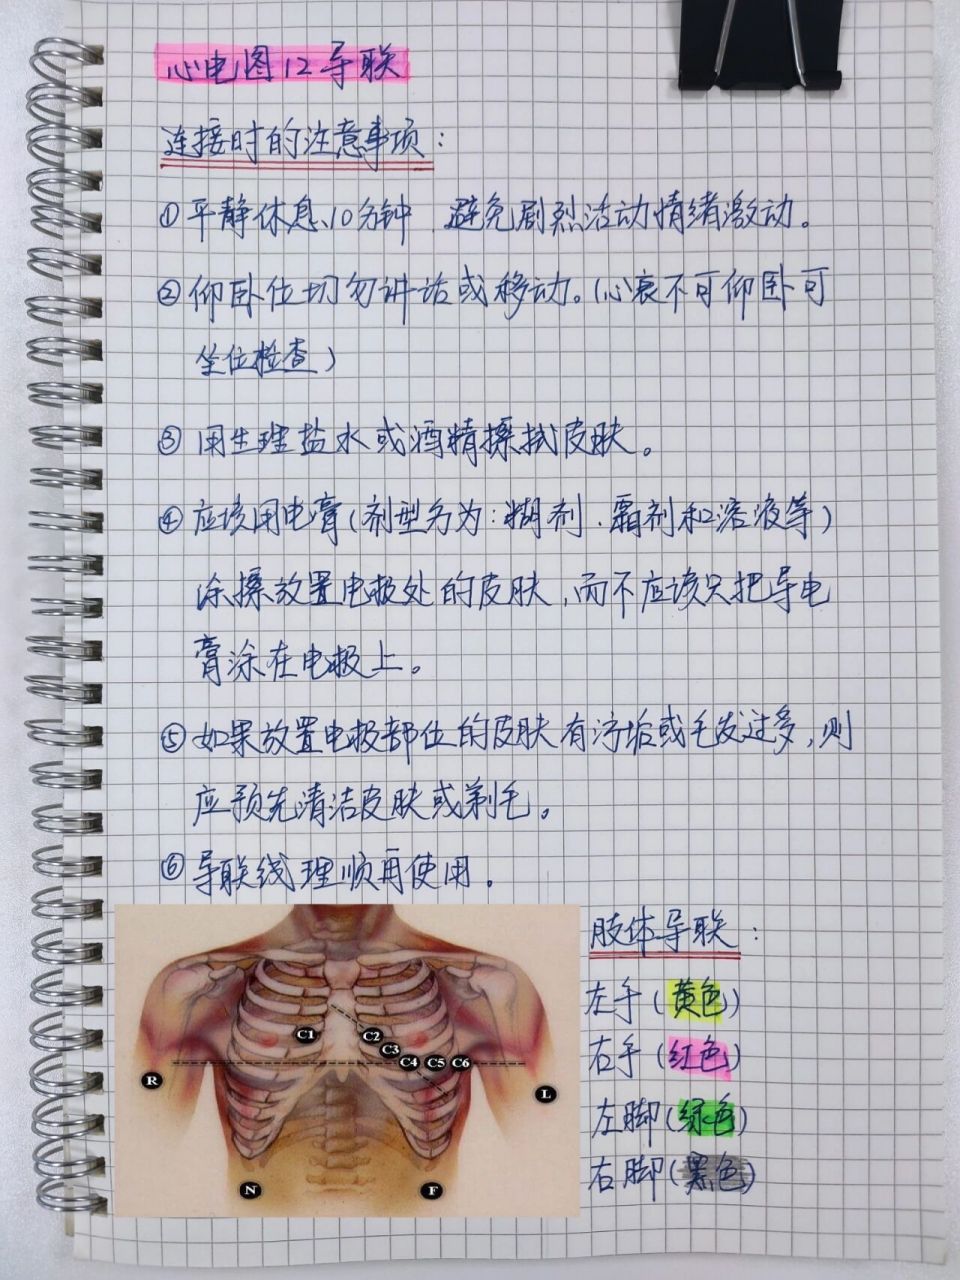 心电图12导联
连接时的注意事项：
①平静休息10分钟 避免剧烈活动情绪激动。
②仰卧位切勿讲话或移动。（心衰不可仰卧可
坐位检查）
③用生理盐水或酒精擦拭皮肤。
④应该用电膏（剂型分为：糊剂、霜剂和溶液等）
涂擦放置电极处的皮肤，而不应该只把导电
膏涂在电极上。
⑤如果放置电极部位的皮肤有污垢或毛发过多，则
应预先清洁皮肤或剃毛。
⑥导联线理顺再使用.
肢体导联：
左手（黄色）
右手（红色）
左脚（绿色）
右脚（黑色）
C1 C2
C3
C4 C5 C6
R
L
N F